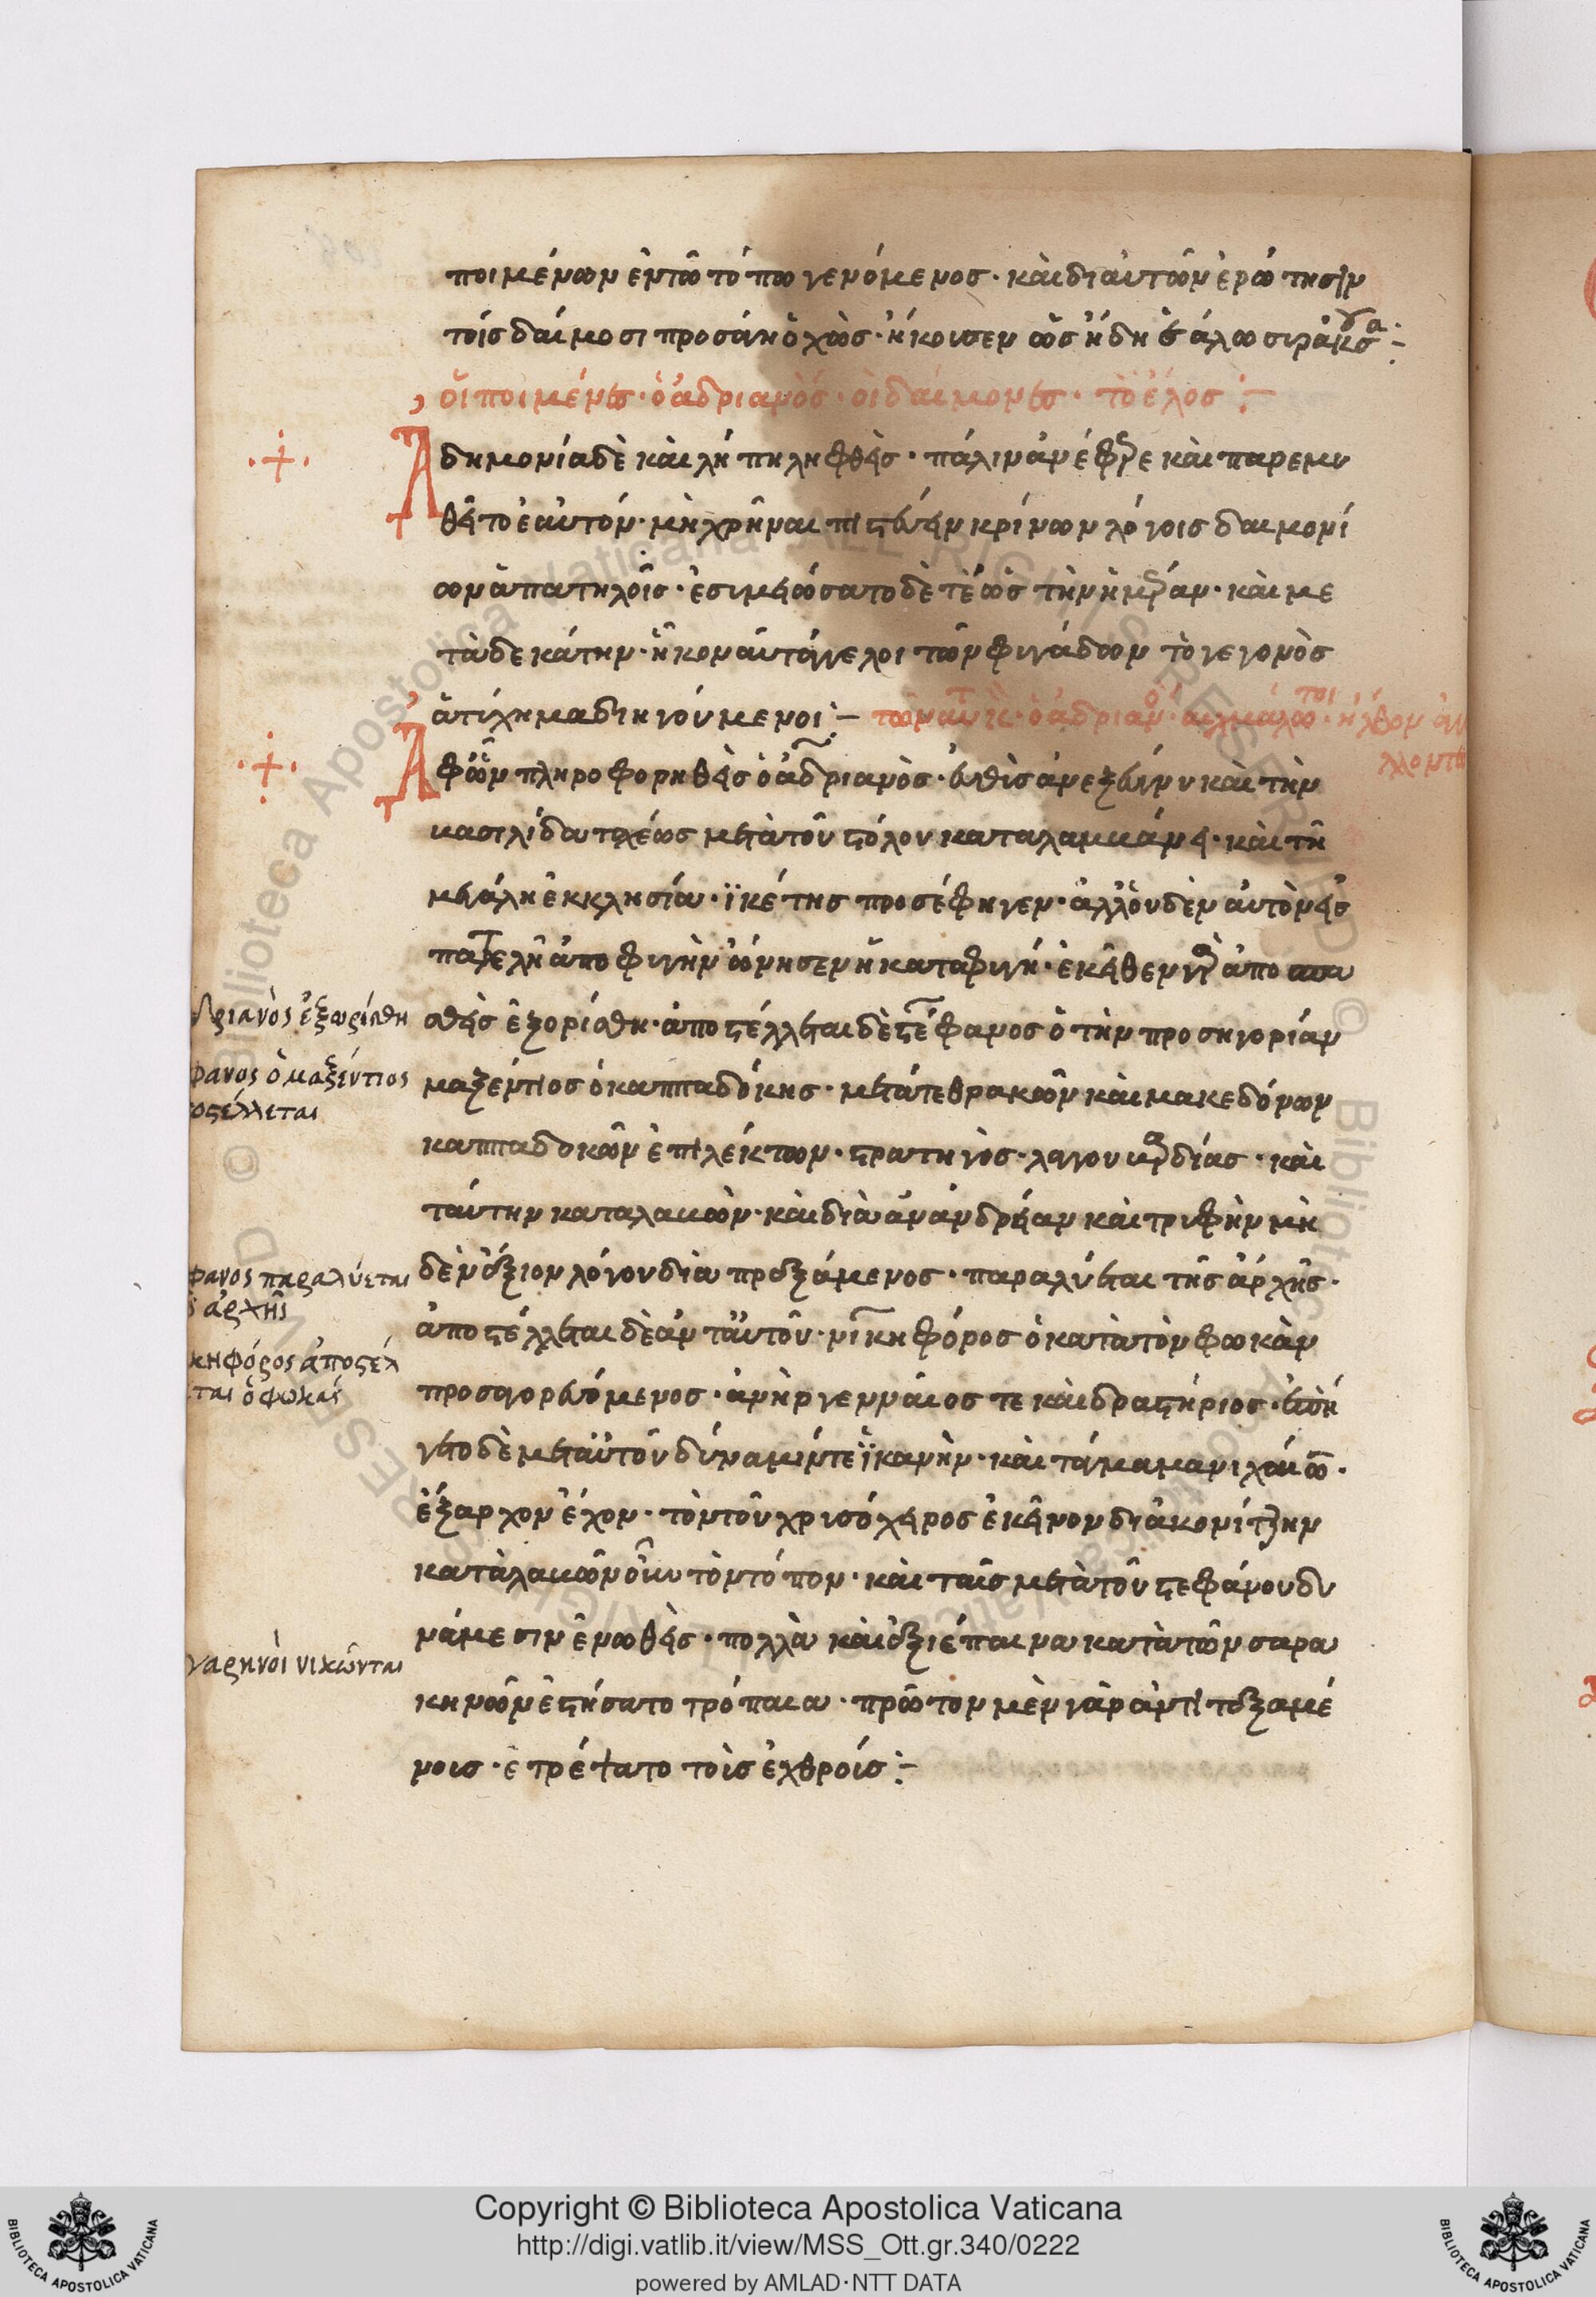 ποιμένων ἐν τῶ τόπω γενόμενος· καὶ δι αὐτῶν ἐρώτησιν
τοῖς δαίμοσι προσάνηοχὼς· ἤκουσεν ὡς ἤδη ἑάλω συράκσ
οἱ ποιμένες· ὁ ἀδριανὸς· οἱ δαίμονες· τὸ ἕλος :–
Ἀδημονία δὲ καὶ λήπη ληφθεὶς· πάλιν ἀνέφερε καὶ παρεμυ
θεῖτο ἑαυτόν· μὴ χρῆναι πιστεύειν κρίνων λόγοις δαιμονί
ων ἀπατηλοῖς· ἐσιμειώσατο δὲ τέως τὴν ἡμέραν· καὶ με
τὰ δεκάτην· ἧκον αὐτάγγελοι τῶν φυγάδων τὸ γεγονὸς
ἀτύχημα διηγούμενοι :–
Ἀφ ὧν πληροφορηθεὶς ὁ ἀδριανὸς· εὐθὺς ἀνεζεύγνυ καὶ τὴν
βασιλίδα ταχέως μετὰ τοῦ στόλου καταλαμβάνει· καὶ τῆ
μεγάλη ἐκκλησία· ϊκέτης προσέφηγεν· ἀλλ οὐδὲν αὐτὸν εἰς
παντελῆ ἀποφυγὴν ὤνησεν ἡ καταφυγή· ἐκεῖθεν γὰρ ἀποσπα
σθεὶς ἐξορίσθη· ἀποστέλλεται δὲ στέφανος ὁ τὴν προσηγορίαν
μαξέντιος ὁ καππαδόκης· μετά τε θρακῶν καὶ μακεδόνων
καππαδοκῶν ἐπιλέκτων· στρατηγὸς· λαγουβαρδίας· καὶ
ταύτην καταλαβὼν· καὶ διὰ ἀνανδρείαν καὶ τρυφὴν μη
δὲν ἄξιον λόγου διαπραξάμενος· παραλύεται τῆς ἀρχῆς·
ἀποστέλλεται δὲ ἀντ αὐτοῦ· νικηφόρος ὁ κατὰ τὸν φωκὰν
προσαγορευόμενος· ἀνὴρ γενναῖος τε καὶ δραστήριος· ἐπή
γετο δὲ μετ αὐτοῦ δύναμίν τε ϊκανὴν· καὶ τάγμα μανιχαίων·
ἔξαρχον ἔχον· τὸν τοῦ χρυσόχειρος ἐκεῖνον διακονίτζην
καταλαβὼν οὖν τὸν τόπον· καὶ ταῖς μετὰ τοῦ στεφάνου δυ
νάμεσιν ἑνωθεὶς· πολλὰ καὶ ἀξιέπαινα κατὰ τῶν σαρα
κηνῶν ἐστήσατο τρόπαια· πρῶτον μὲν γὰρ ἀντιταξαμέ
νοις· ἐτρέψατο τοῖς ἐχθροῖς :–
δριανὸς ἐξωρίσθη
φανος ὁ μαξέντιος
οστέλλεται
φανος παραλύεται
ς ἀρχῆς
κηφόρος ἀποστέλ
ται ὁ φωκᾶς
γαρηνοὶ νικῶνται
Copyright © Biblioteca Apostolica Vaticana
http://digi.vatlib.it/view/MSS_Ott.gr.340/0222
powered by AMLAD·NTT DATA
BIBLIOTECA APOSTOLICA VATICANA
BIBLIOTECA APOSTOLICA VATICANA